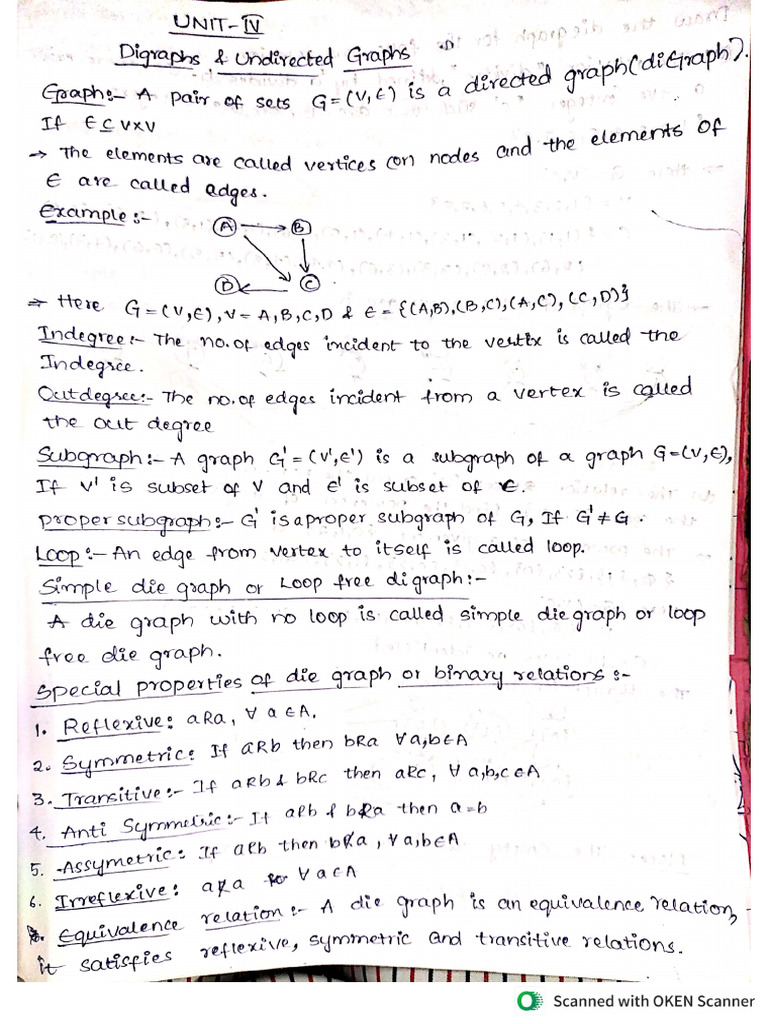 UNIT-IV
Digraphs & Undirected Graphs
Graph:- A pair of sets G=(V,E) is a directed graph(diGraph).
If E⊆V×V
→ The elements are called vertices (or) nodes and the elements of
E are called edges.
Example:-
A B
D C
→ Here G=(V,E), V=A,B,C,D & E={(A,B),(B,C),(A,C),(C,D)}
Indegree:- The no.of edges incident to the vertix is called the
Indegree.
Outdegree:- The no.of edges incident from a vertex is called
the out degree
Subgraph:- A graph G'=(V',E') is a subgraph of a graph G=(V,E),
If V' is subset of V and E' is subset of E.
proper subgraph:- G' is a proper subgraph of G, If G'≠G.
Loop:- An edge from vertex to itself is called loop.
Simple die graph or Loop free di graph:-
A die graph with no loop is called simple die graph or loop
free die graph.
Special properties of die graph or binary relations:-
1. Reflexive: aRa, ∀ a∈A.
2. Symmetric: If aRb then bRa ∀a,b∈A
3. Transitive:- If aRb & bRc then aRc, ∀a,b,c∈A
4. Anti Symmetric:- If aRb & bRa then a=b
5. Assymetric: If aRb then bR̸a, ∀a,b∈A
6. Irreflexive: aR̸a ∀a∈A
Equivalence relation:- A die graph is an equivalence relation,
it satisfies reflexive, symmetric and transitive relations.
Scanned with OKEN Scanner